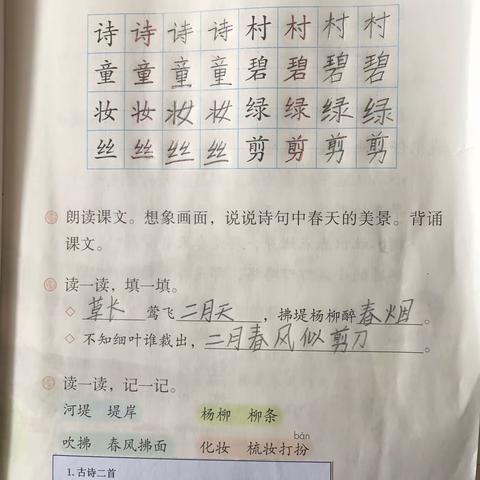 诗 诗 诗 诗 村 村 村 村
童 童 童 童 碧 碧 碧 碧
妆 妆 妆 妆 绿 绿 绿 绿
丝 丝 丝 丝 剪 剪 剪 剪
朗读课文。想象画面，说说诗句中春天的美景。背诵
课文。
读一读，填一填。
◇ 草长 莺飞 二月天，拂堤杨柳醉 春烟。
◇ 不知细叶谁裁出，二月春风似剪刀。
读一读，记一记。
河堤 堤岸 杨柳 柳条
bàn
吹拂 春风拂面 化妆 梳妆打扮
1. 古诗二首